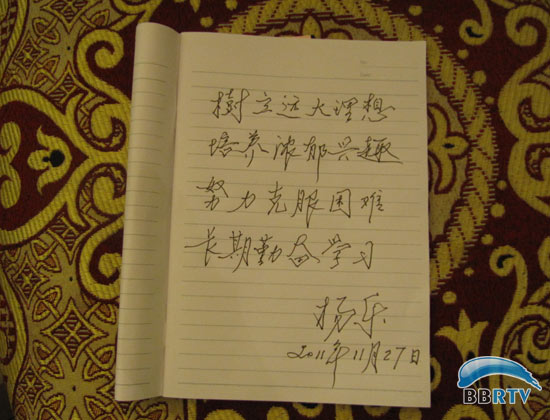 樹立远大理想
培养浓郁兴趣
努力克服困难
长期勤奋学习
杨乐
2011年11月27日
BBRTV